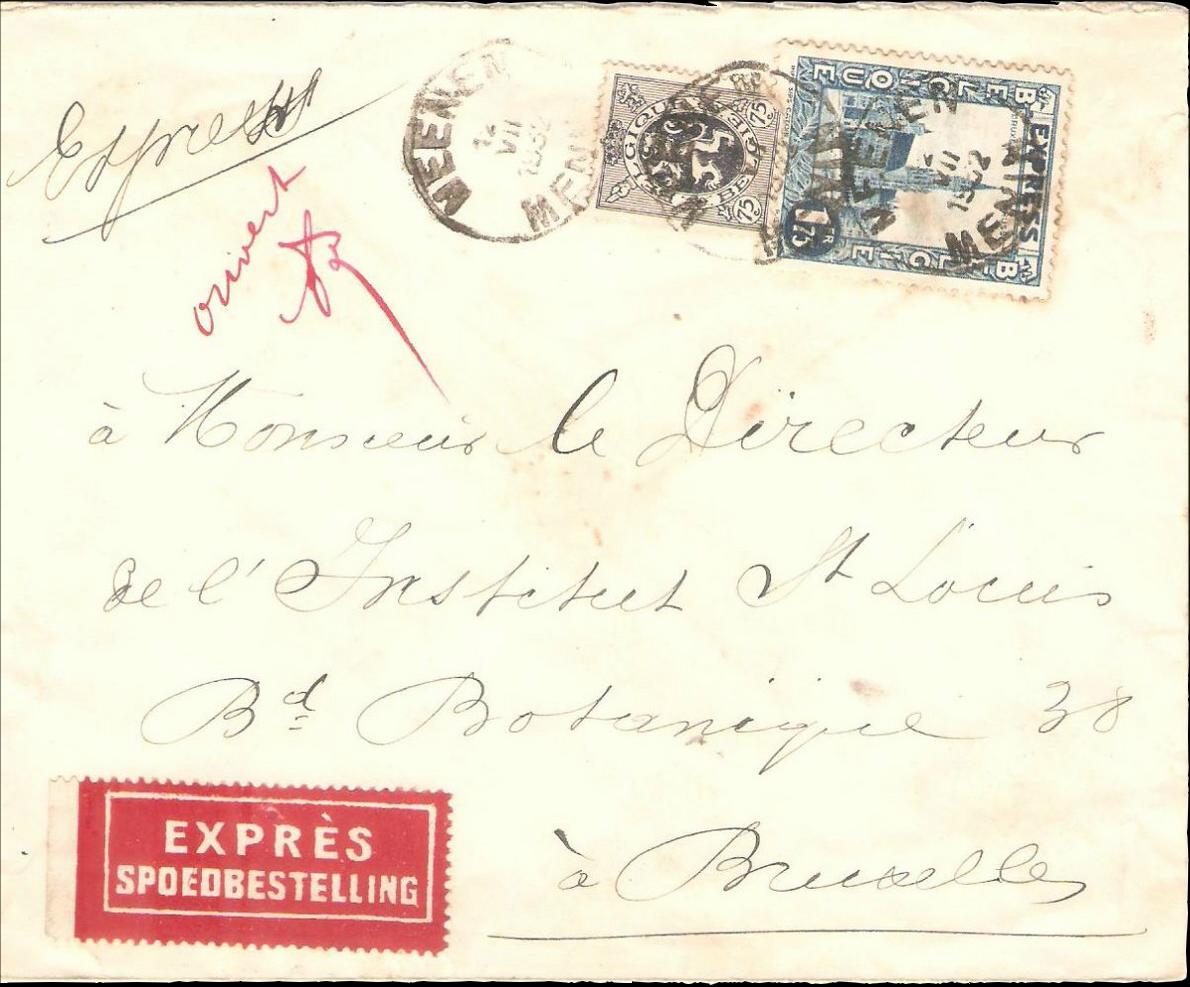 Express
ouvert
MEENEN
VII
1932
MENIN
BELGIQUE BELGIE
75 75
75
BELGIQUE
EXPRESS
1FR75
BELGIE
MEENEN
VII
1932
MENIN
à Monsieur le Directeur
de l'Institut St Louis
Bd Botanique 38
à Bruxelles
EXPRÈS
SPOEDBESTELLING